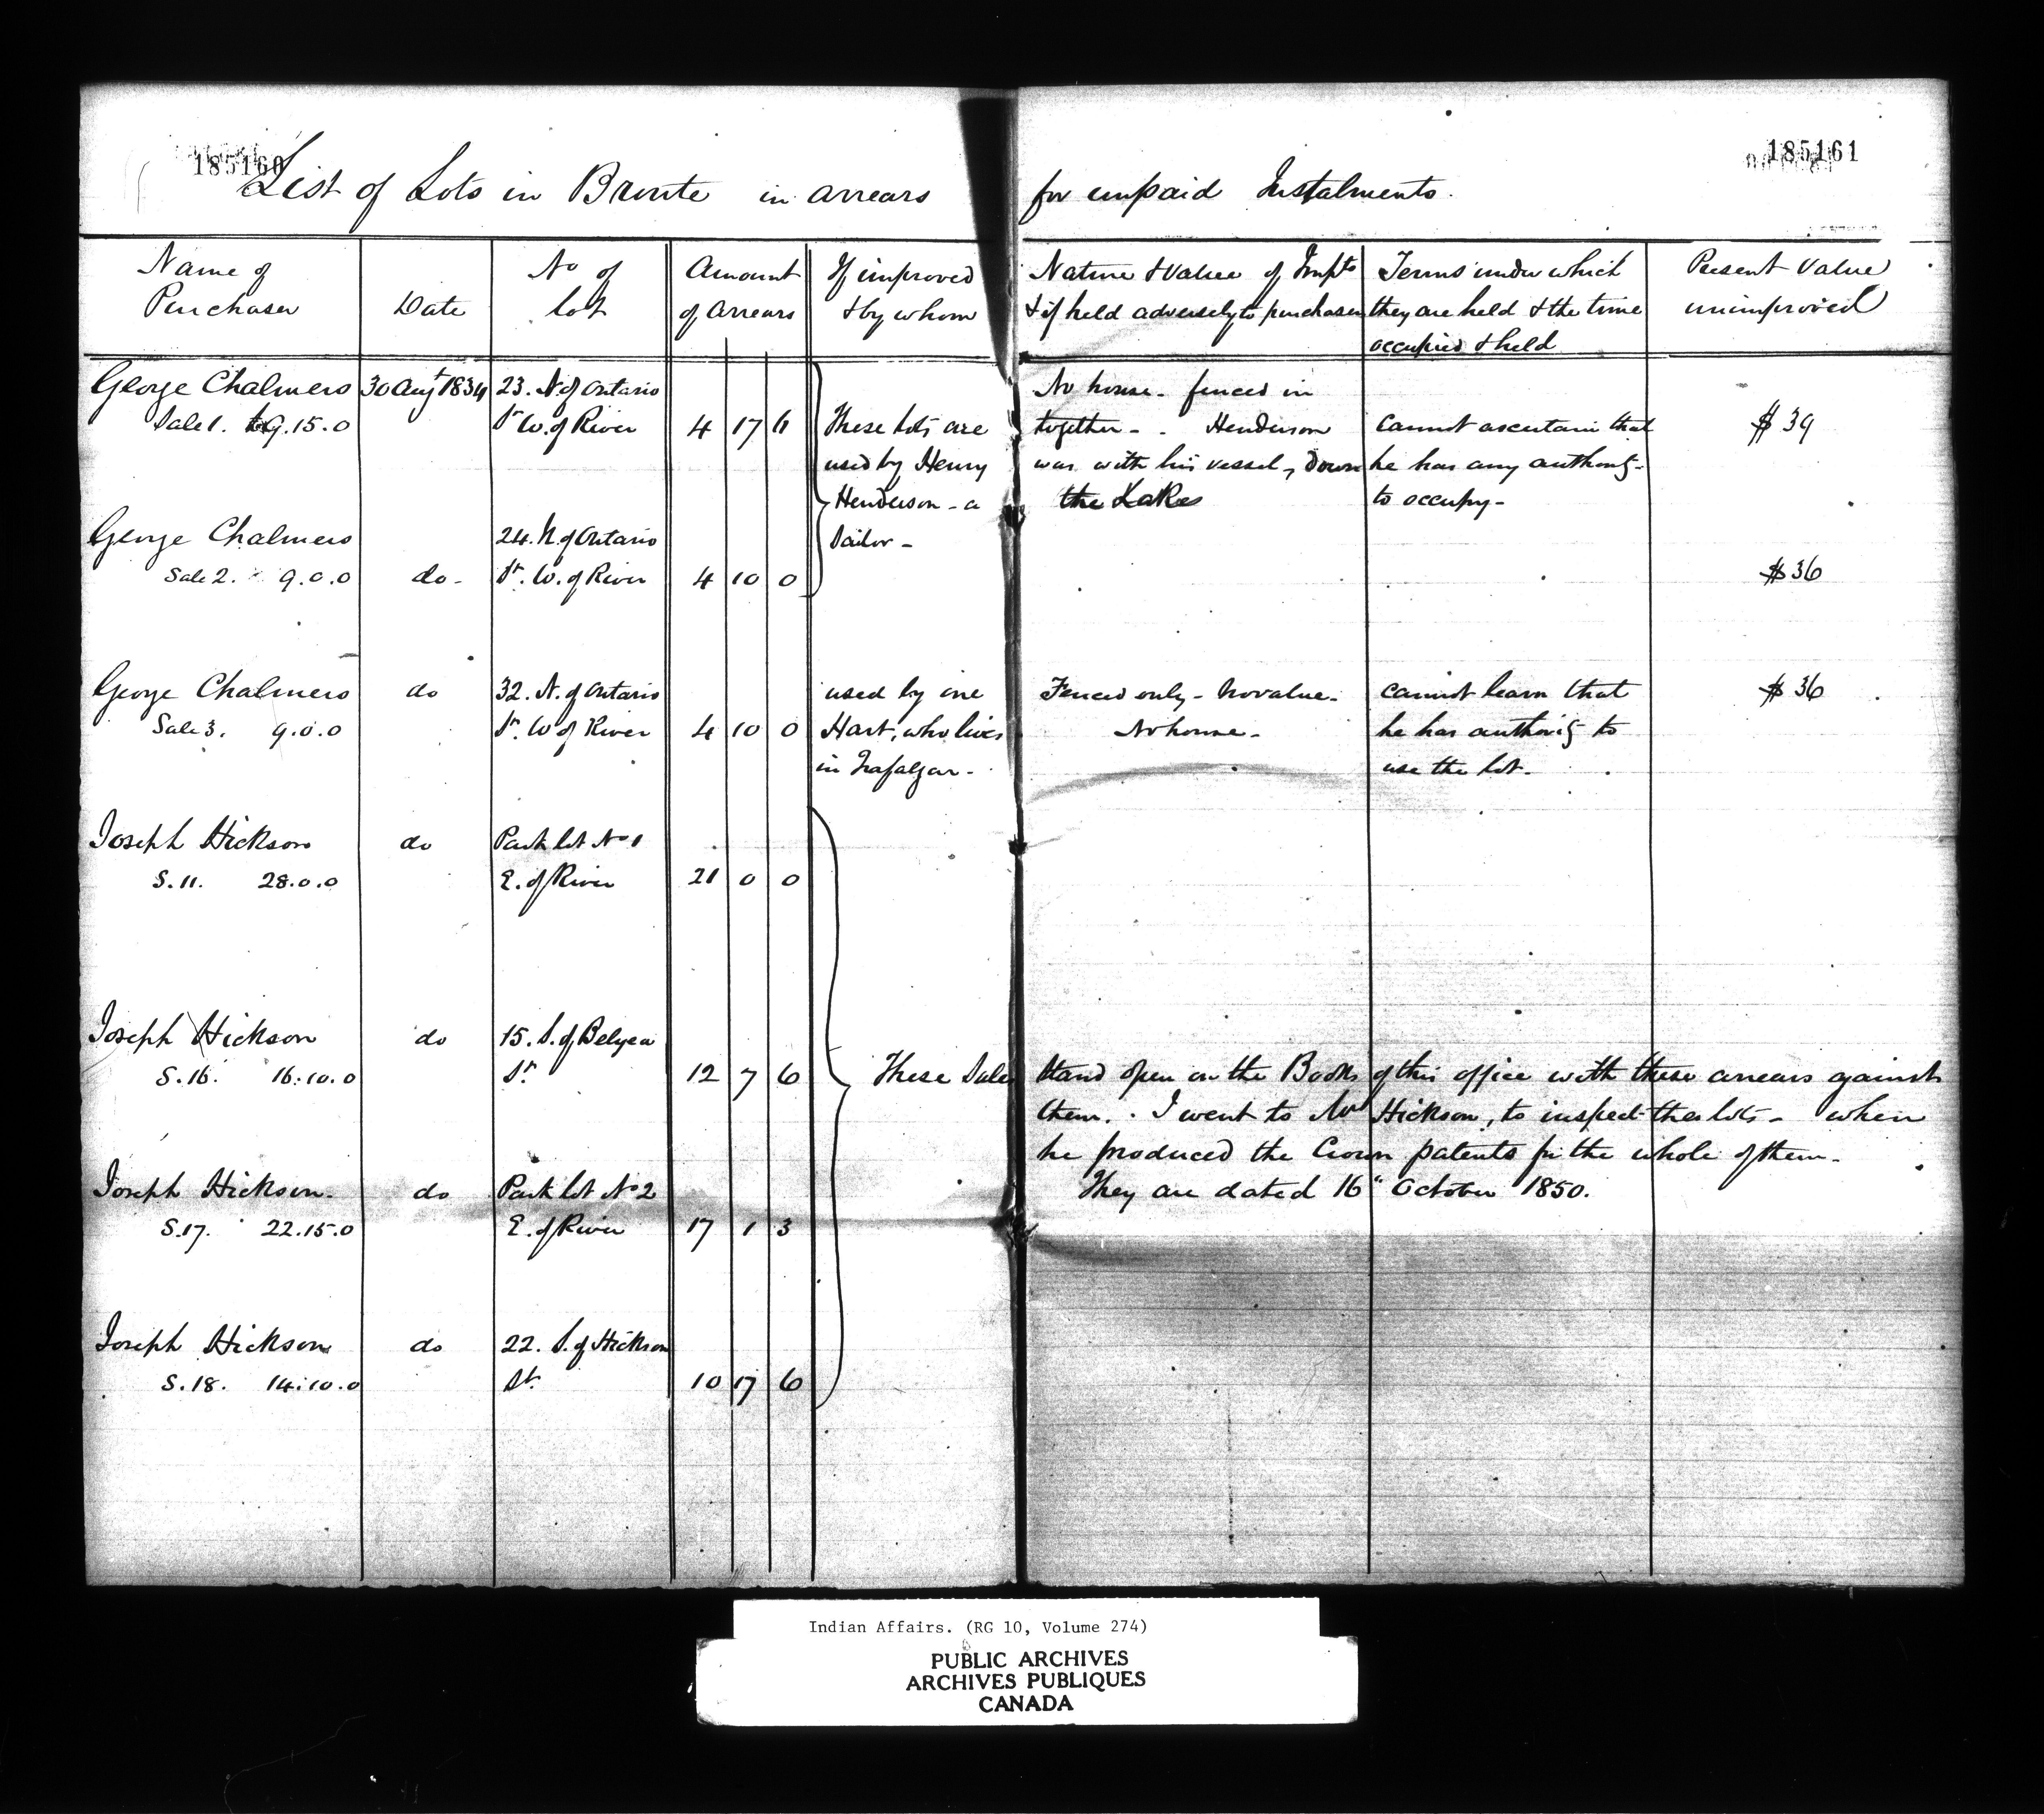 185160
185161
List of Lots in Bronte in arrears for unpaid Instalments.
Name of Purchaser
Date
No of lot
Amount of Arrears
If improved & by whom
Nature & Value of Impts & if held adversely to purchaser
Terms under which they are held & the time occupied & held
Present Value unimproved
George Chalmers 30 Augt 1834 23. N. of Ontario
Sale 1. 9.15.0 St W. of River 4 17 6
These lots are
used by Henry
Henderson - a
Sailor -
No house - fenced in
together - . Henderson
was with his vessel, down
the Lake
Cannot ascertain that
he has any authority
to occupy -
$ 39
George Chalmers 24. N. of Ontario
Sale 2. 9.0.0 do - St. W. of River 4 10 0
$ 36
George Chalmers do 32. N. of Ontario
Sale 3. 9.0.0 St. W of River 4 10 0
used by one
Hart, who lives
in Trafalgar -
Fenced only - No value -
No house -
cannot learn that
he has authority to
use the lot -
$ 36
Joseph Hickson do Park lot No 1
S. 11. 28.0.0 E. of River 21 0 0
Joseph Hickson do 15. S. of Belyea
S. 16. 16.10.0 St. 12 7 6
These Sales stand open on the Books of this office with these arrears against
them. . I went to Mr Hickson, to inspect the lots - when
he produced the Crown patents for the whole of them -
They are dated 16" October 1850.
Joseph Hickson - do Park lot No 2
S. 17. 22.15.0 E. of River 17 1 3
Joseph Hickson do 22. S. of Hickson
S. 18. 14.10.0 St. 10 17 6
Indian Affairs. (RG 10, Volume 274)
PUBLIC ARCHIVES
ARCHIVES PUBLIQUES
CANADA